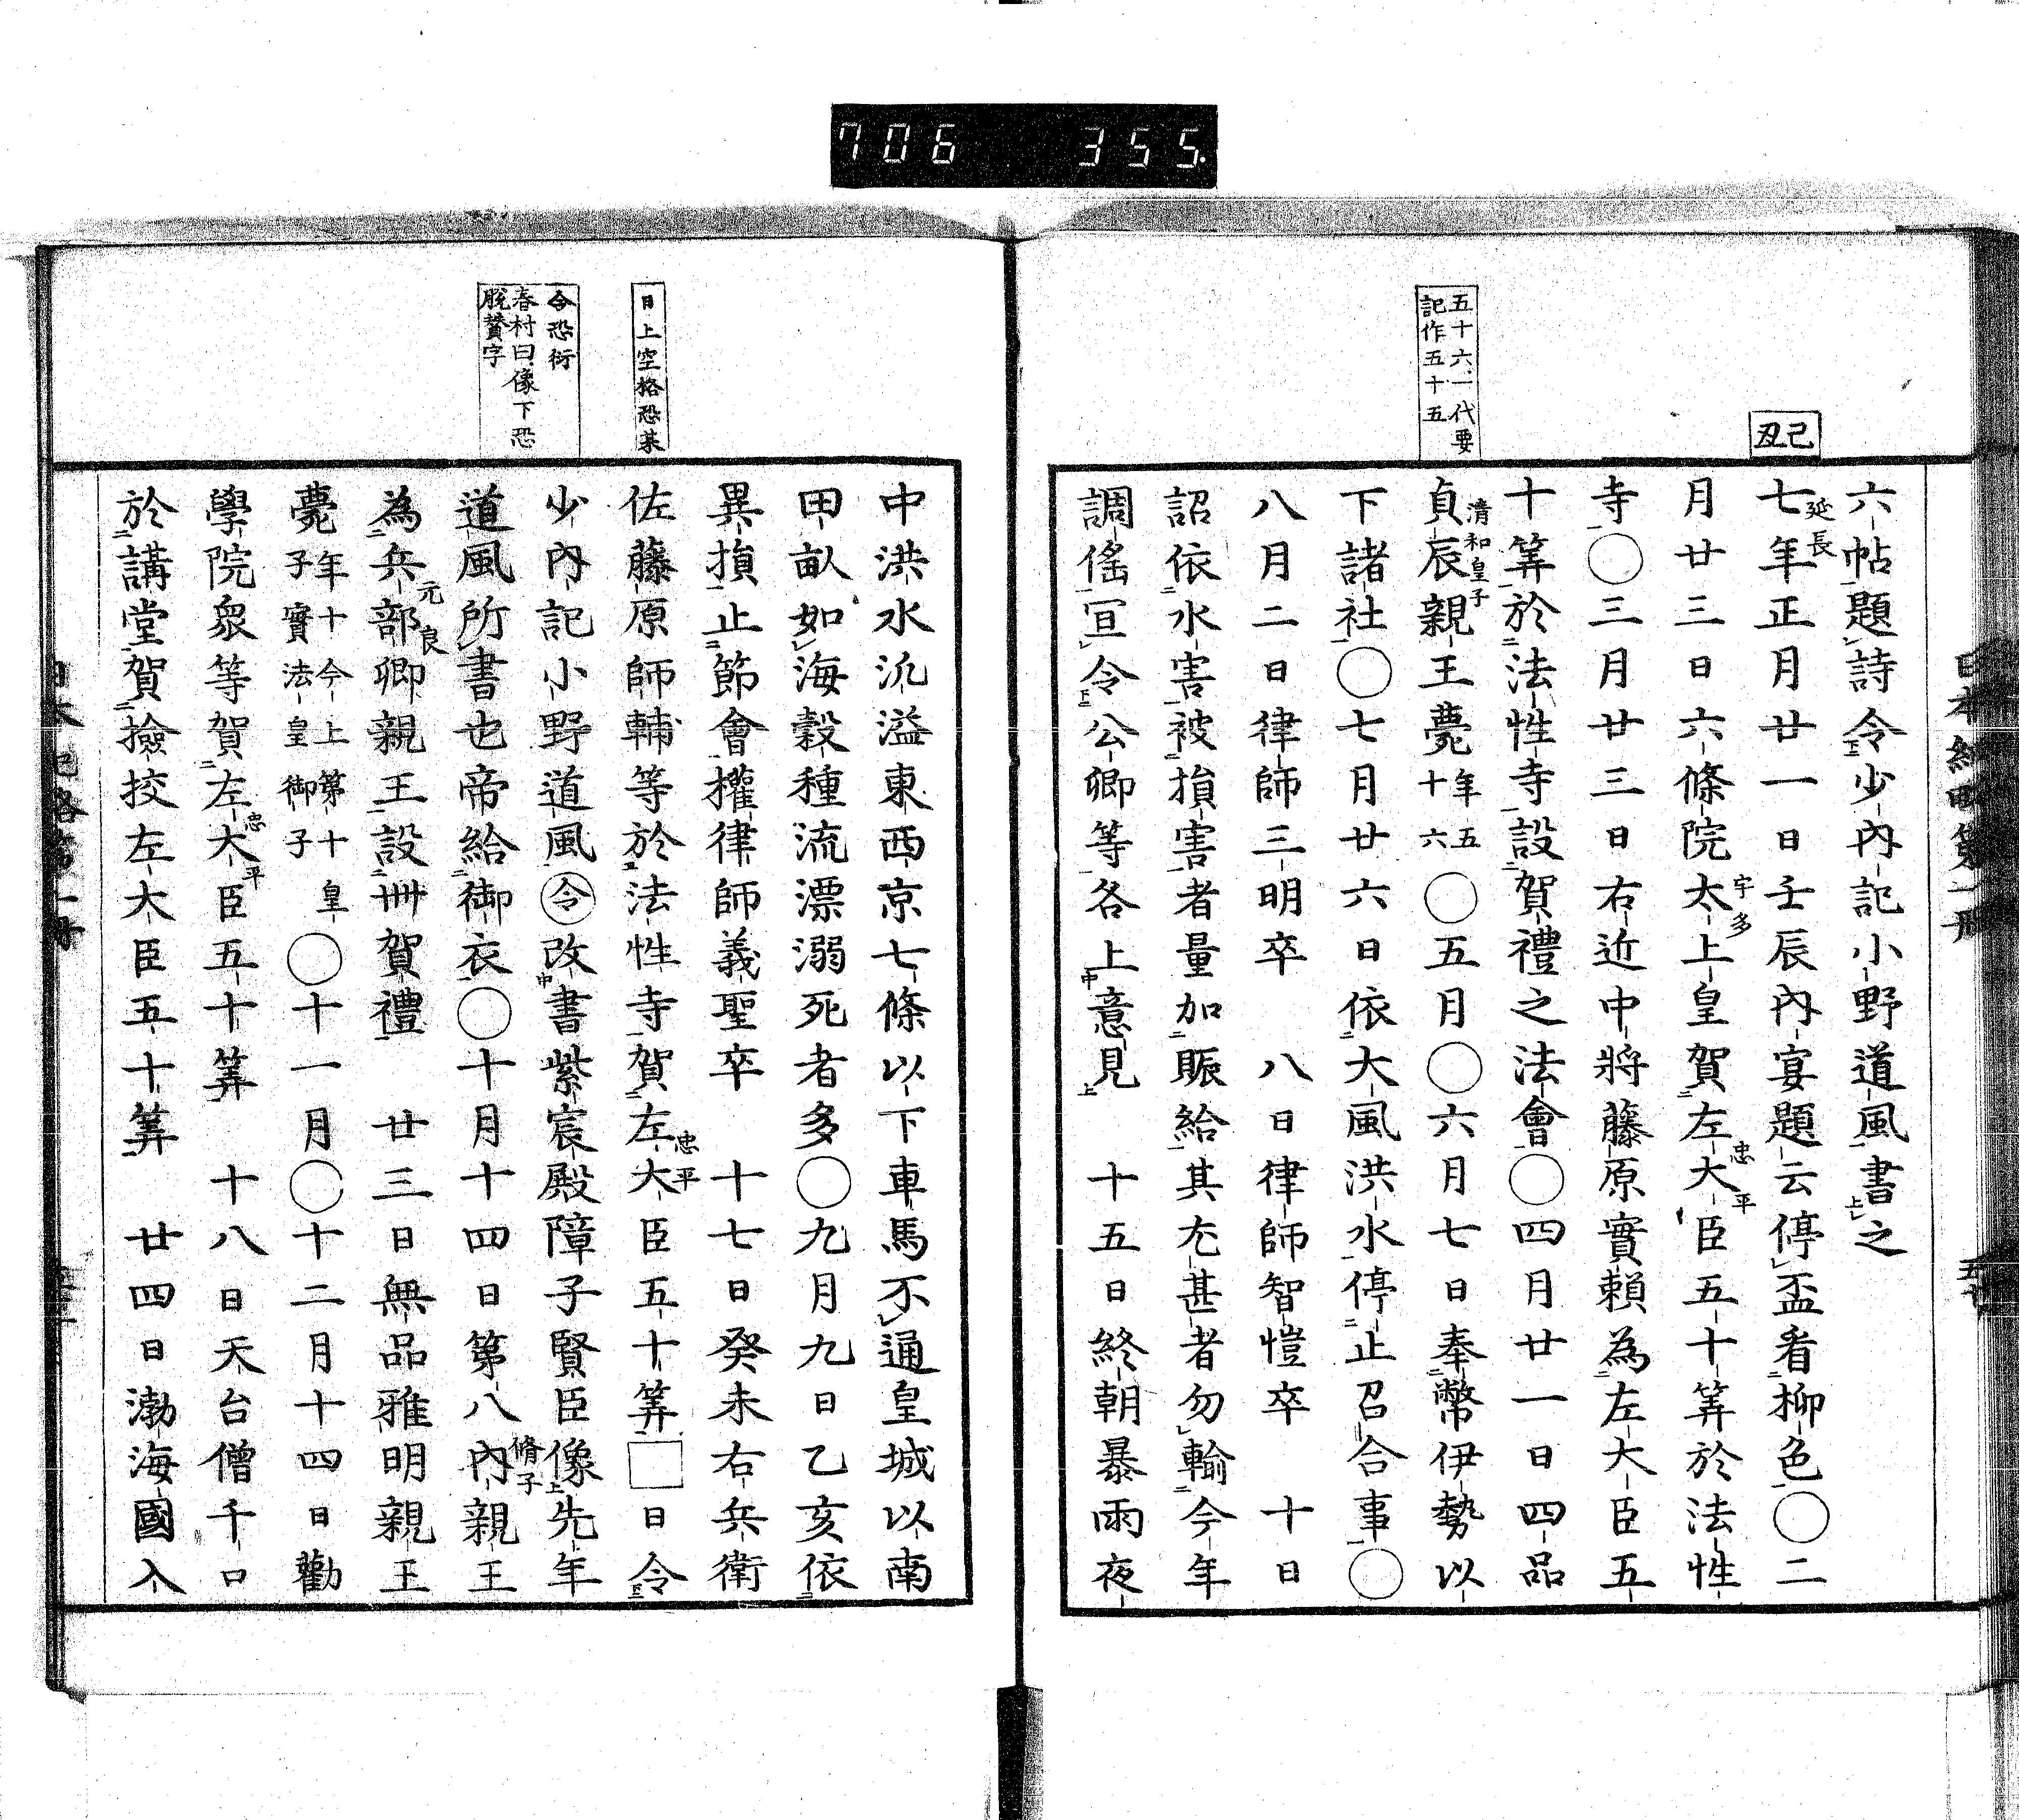 706 355
己丑
五十六、一代要
記作五十五
六帖題詩令少內記小野道風書之
延長
七年正月廿一日壬辰內宴題云停盃看柳色○二
月廿三日六條院太上皇賀左大臣五十筭於法性
宇多
忠平
寺○三月廿三日右近中將藤原實賴為左大臣五
十筭於法性寺設賀禮之法會○四月廿一日四品
清和皇子
貞辰親王薨年五十六○五月○六月七日奉幣伊勢以
下諸社○七月廿六日依大風洪水停止召合事○
八月二日律師三明卒 八日律師智愷卒 十日
詔依水害被損害者量加賑給其尤甚者勿輸今年
調徭宣令公卿等各上意見 十五日終朝暴雨夜
日上空格恐某
令恐衍
春村曰像下恐
脫贊字
中洪水汎溢東西京七條以下車馬不通皇城以南
田畝如海穀種流漂溺死者多○九月九日乙亥依
異損止節會權律師義聖卒 十七日癸未右兵衛
佐藤原師輔等於法性寺賀左大臣五十筭□日令
忠平
少內記小野道風令改書紫宸殿障子賢臣像先年
道風所書也帝給御衣○十月十四日第八內親王
脩子
為兵部卿親王設卌賀禮 廿三日無品雅明親王
元良
薨年十今上第十皇子實法皇御子○十一月○十二月十四日勸
學院衆等賀左大臣五十筭 十八日天台僧千口
忠平
於講堂賀撿挍左大臣五十筭 廿四日渤海國入